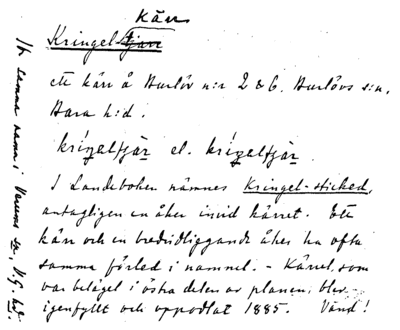 kärr
Kringel-tjärr
ett kärr å Burlöv n:r 2 & 6. Burlövs s:n,
Bara h:d.
krígeltjär el. krígeltjär
I Landeboken nämnes Kringel-sticked,
antagligen en åker invid kärret. Ett
kärr och en bredvidliggande åker ha ofta
samma förled i namnet. – Kärret, som
var beläget i östra delen av planen, blev
igenfyllt och uppodlat 1885. Vänd!
samma namn i Varums sn, V.G. hd.